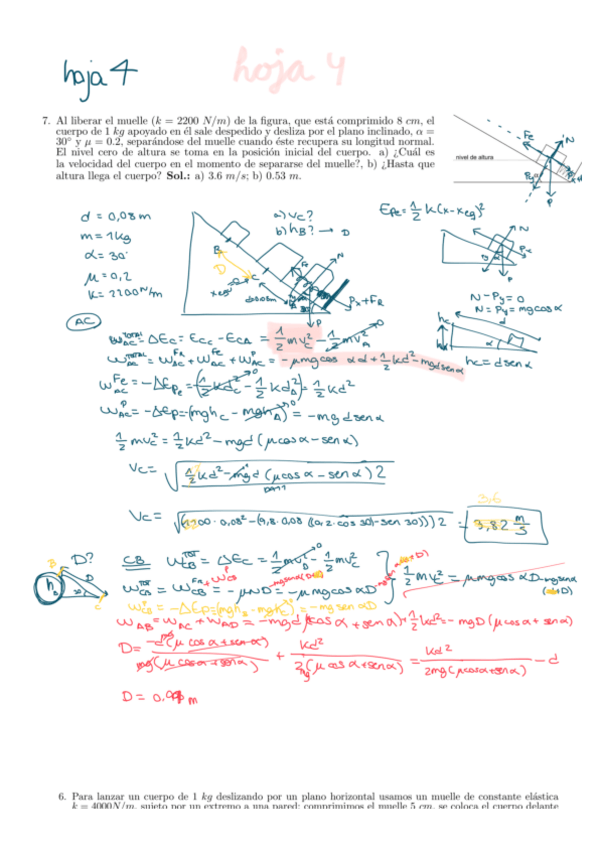 hoja 4
hoja 4
7. Al liberar el muelle (k = 2200 N/m) de la figura, que está comprimido 8 cm, el
cuerpo de 1 kg apoyado en él sale despedido y desliza por el plano inclinado, α =
30° y μ = 0.2, separándose del muelle cuando éste recupera su longitud normal.
El nivel cero de altura se toma en la posición inicial del cuerpo. a) ¿Cuál es
la velocidad del cuerpo en el momento de separarse del muelle?, b) ¿Hasta que
altura llega el cuerpo? Sol.: a) 3.6 m/s; b) 0.53 m.
nivel de altura
Fe
N
P
d = 0,08 m
m = 1kg
α = 30°
μ = 0,2
k = 2200 N/m
a) Vc?
b) hB? → D
Epe = 1/2 k(x - xeq)²
B
D
C
N
Px + FR
P
N - Py = 0
N = Py = mg cos α
hc
hc = d sen α
AC
W TOTAL AC = ΔEc = Ecc - EcA = 1/2 mvc² - 1/2 mvA² 0
W TOTAL AC = W FR AC + W Fe AC + W P AC = -μmg cos α d + 1/2 kd² - mgd sen α
W Fe AC = -ΔEpe = -(1/2 kdc² - 1/2 kdA²) = 1/2 kd²
W P AC = -ΔEp = -(mghc - mghA) = -mgd sen α
1/2 mvc² = 1/2 kd² - mgd (μcos α - sen α)
Vc = √(1/2 kd² - mgd (μcos α - sen α)) 2
3.6
Vc = √(1/2 2200 · 0,08² - (9,8 · 0,08 (0,2 · cos 30) - sen 30))) 2 = 3,82 m/s
D?
CB W TOT CB = ΔEc = 1/2 mvB² - 1/2 mvc²
W TOT CB = W FR CB + W P CB = -μND = -μmg cos α D
1/2 mvc² = μmg cos α D - mg sen α
W P CB = -ΔEp = -(mghB - mghc) = -mg sen α D
WAB = WAC + WAD = -mgd (μcos α + sen α) + 1/2 kd² = -mgD (μcos α + sen α)
D = -d mg (μ cos α + sen α) / mg (μ cos α + sen α) + kd² / 2mg (μ cos α + sen α) = kd² / 2mg (μcos α + sen α) - d
6. Para lanzar un cuerpo de 1 kg deslizando por un plano horizontal usamos un muelle de constante elástica
k = 4000N/m, sujeto por un extremo a una pared; comprimimos el muelle 5 cm, se coloca el cuerpo delante